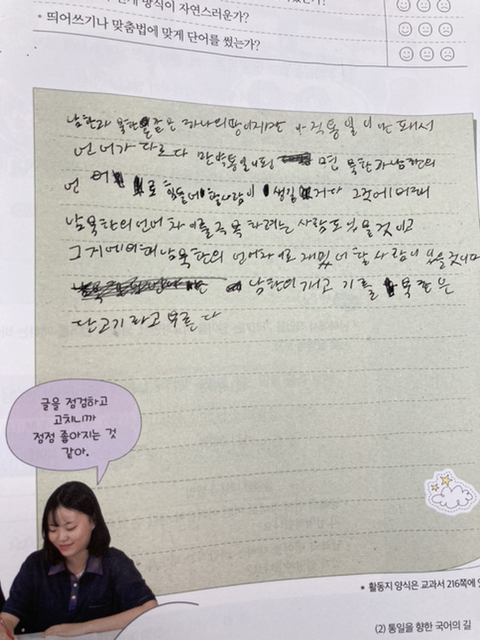 방식이 자연스러운가?
• 띄어쓰기나 맞춤법에 맞게 단어를 썼는가?
남한과 북한은 같은 하나의 땅이지만 아직 통일이 안 돼서
언어가 다르다 만약 통일이 된 면 북한과 남한의
언어 로 힘들어 할 사람이 생길 거다 그것에 비해
남북한의 언어 차이를 극복하려는 사람도 있을 것이고
그거에 비해 남북한의 언어차이로 재밌어 할 사람이 있을것이다
남한이 개고기를 북한은
단고기라고 부른다
글을 점검하고
고치니까
점점 좋아지는 것
같아.
• 활동지 양식은 교과서 216쪽에
(2) 통일을 향한 국어의 길